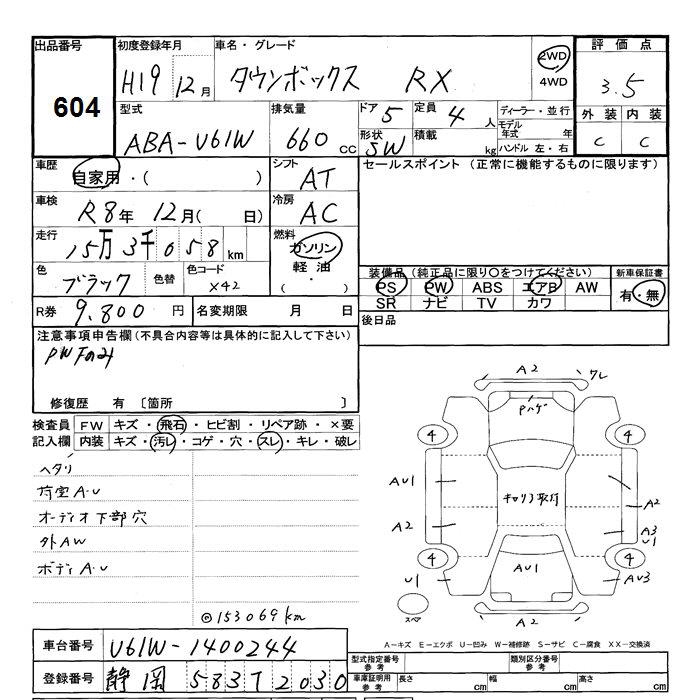 出品番号 604
初度登録年月 H19 12月
車名・グレード タウンボックス RX
2WD
4WD
評価点 3.5
外装 C 内装 C
型式 ABA-U61W
排気量 660 cc
ドア 5
定員 4 人
形状 5W
積載 kg
ディーラー・並行
モデル年式 年
ハンドル 左・右
車歴 自家用・( )
シフト AT
セールスポイント (正常に機能するものに限ります)
車検 R8年 12月( 日)
冷房 AC
走行 15万3千058 km
燃料 ガソリン
軽油
( ・ )
色 ブラック
色替
色コード X42
装備品(純正品に限り○をつけてください)
PS PW ABS エアB AW
SR ナビ TV カワ
新車保証書
有・無
R券 9,800 円
名変期限 月 日
後日品
注意事項申告欄(不具合内容等は具体的に記入して下さい)
PWFのみ
修復歴 有 〔箇所 〕
検査員 FW キズ・飛石・ヒビ割・リペア跡・×要
記入欄 内装 キズ・汚レ・コゲ・穴・スレ・キレ・破レ
ヘタリ
荷室A.U
オーディオ下部穴
外AW
ボディA.U
◎153069km
A2 ワレ
Pハゲ
4 4
AU1
A2
A2
A3
U1
4 4
U1
AU1
AU3
スペア
A2
A-キズ E-エクボ U-凹み W-補修跡 S-サビ C-腐食 XX-交換済
車台番号 U61W-1400244
登録番号 静岡 583 2030
型式指定番号 参考
類別区分番号 参考
車庫証明用 参考
長さ cm 幅 cm 高さ cm